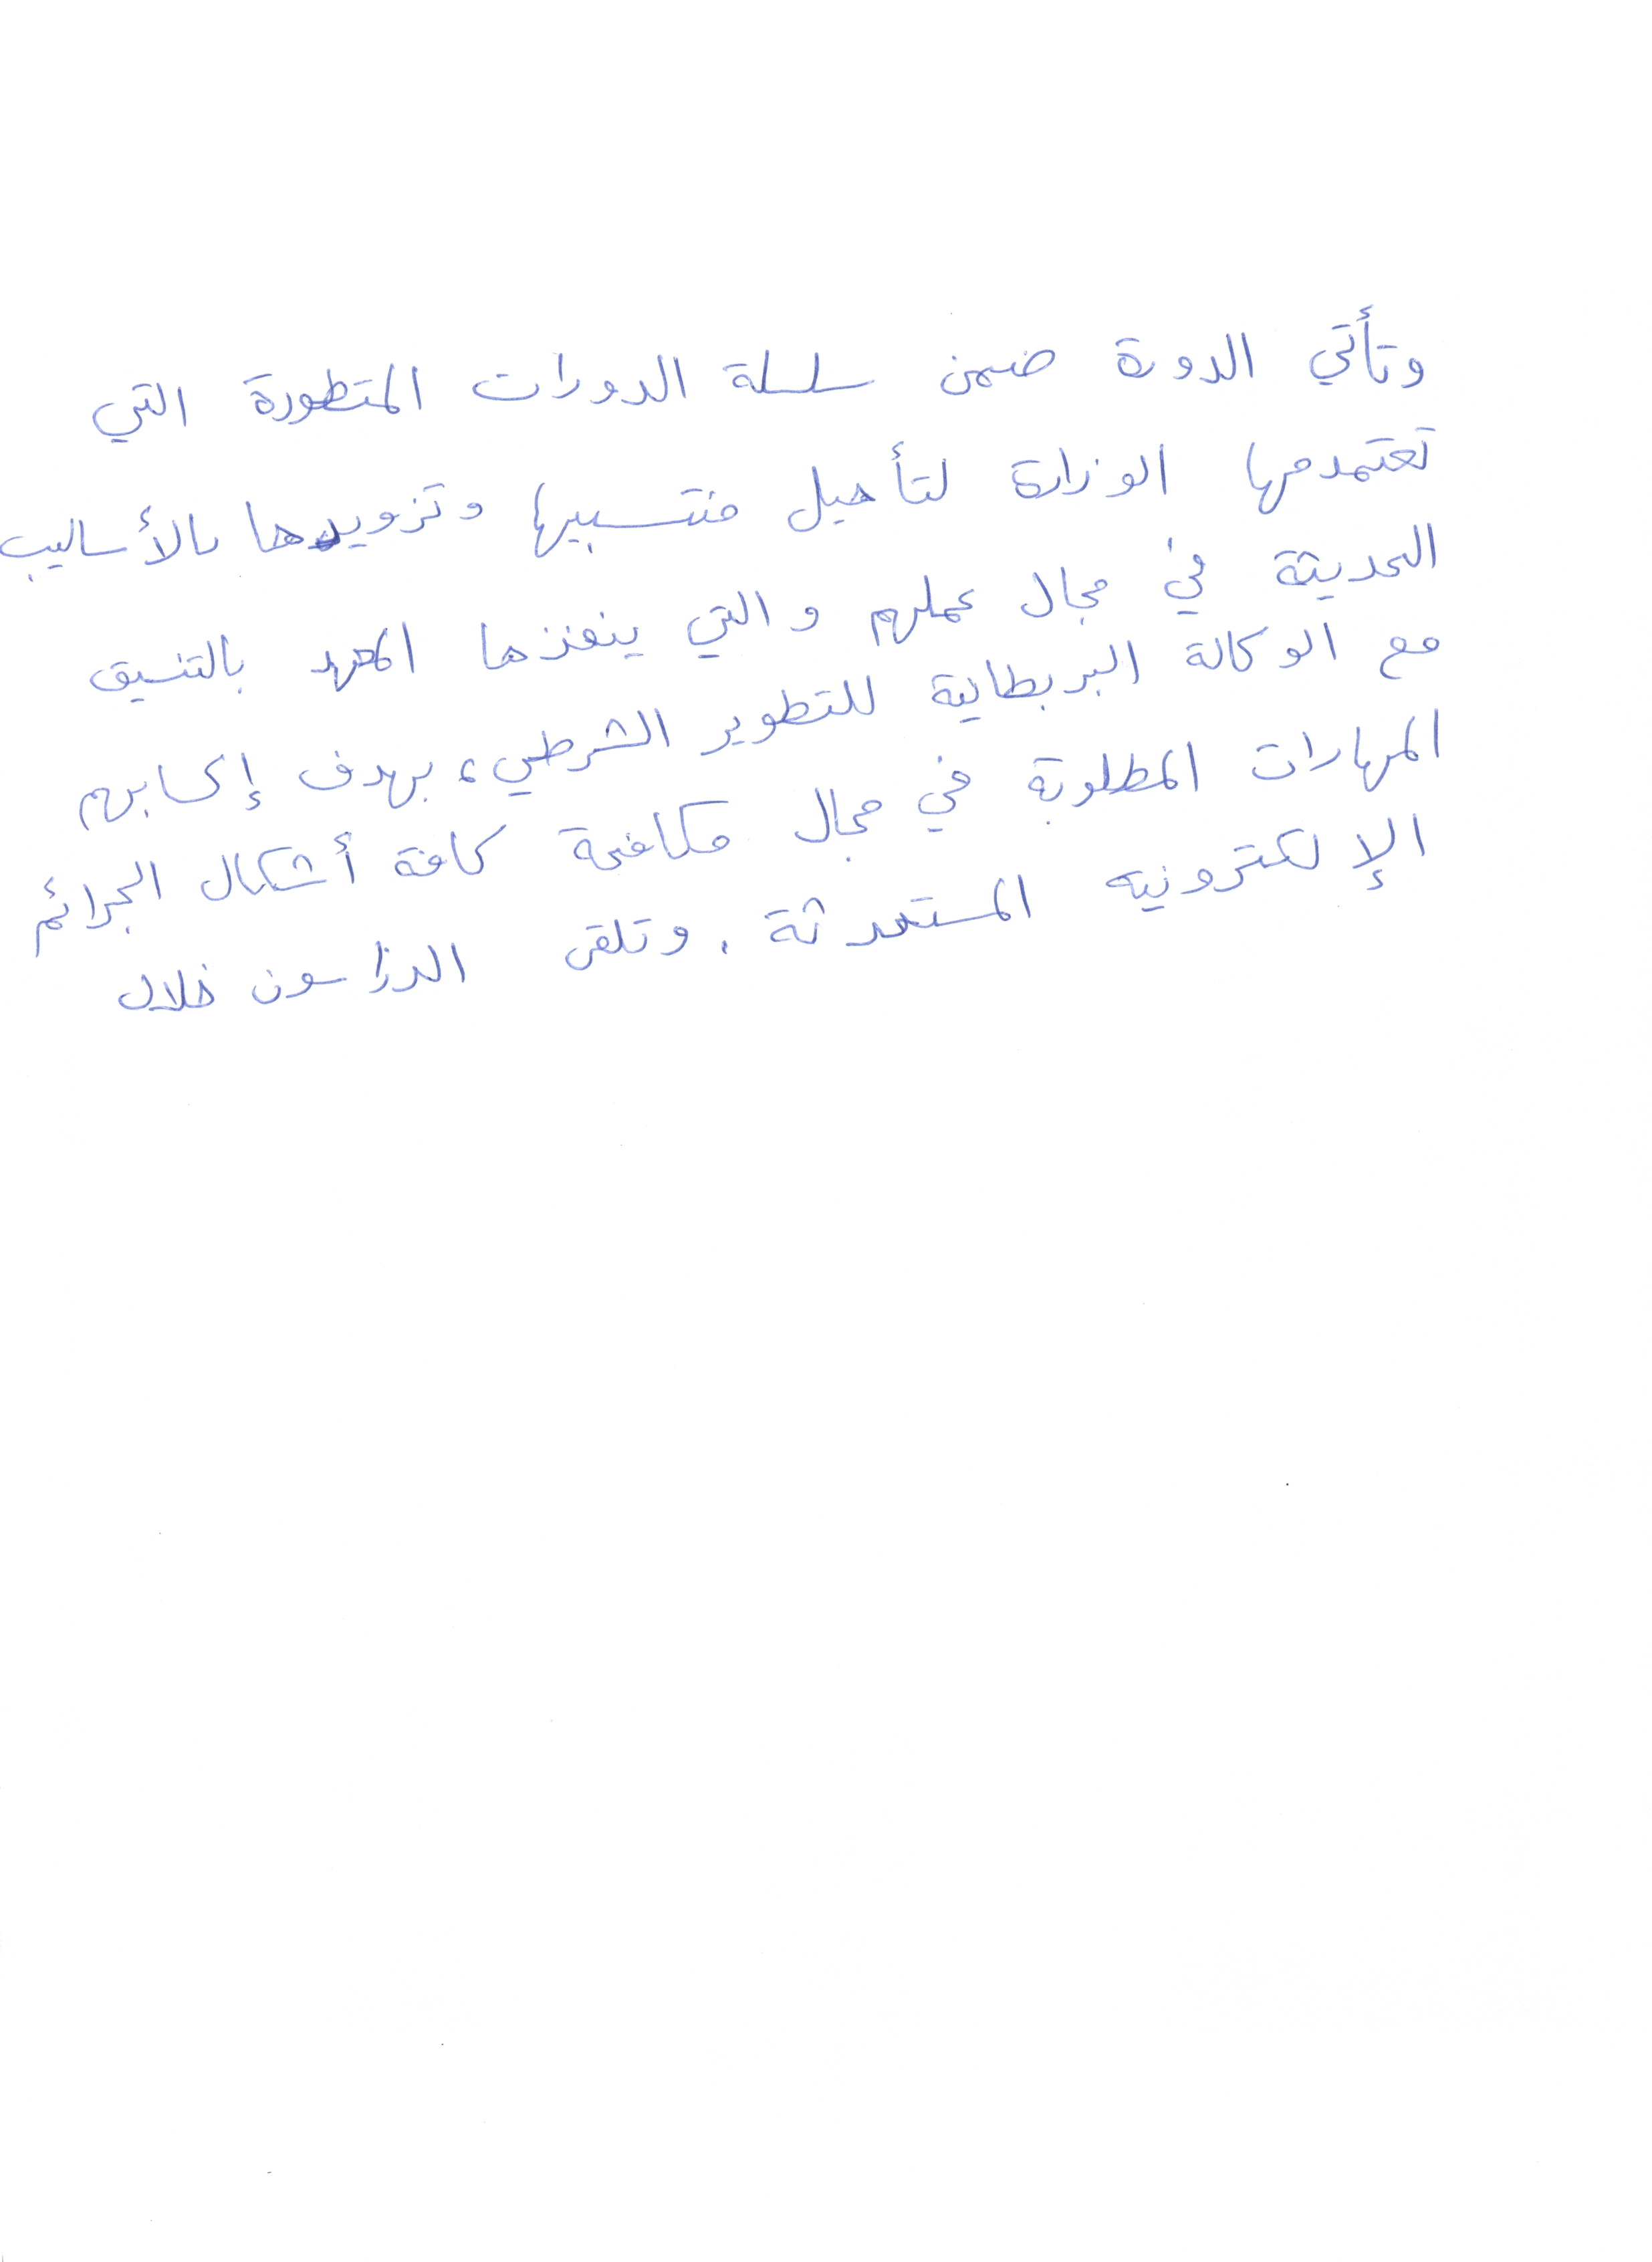 وتأتي الدورة ضمن سلسلة الدورات المتطورة التي
تعتمدها الوزارة لتأهيل منتسبيها وتزويدها بالأساليب
الحديثة في مجال عملهم والتي ينفذها المعهد بالتنسيق
مع الوكالة البريطانية للتطوير الشرطي، بهدف إكسابهم
المهارات المطلوبة في مجال مكافحة كافة أشكال الجرائم
الإلكترونيه المستحدثة. وتلقى الدارسون خلال